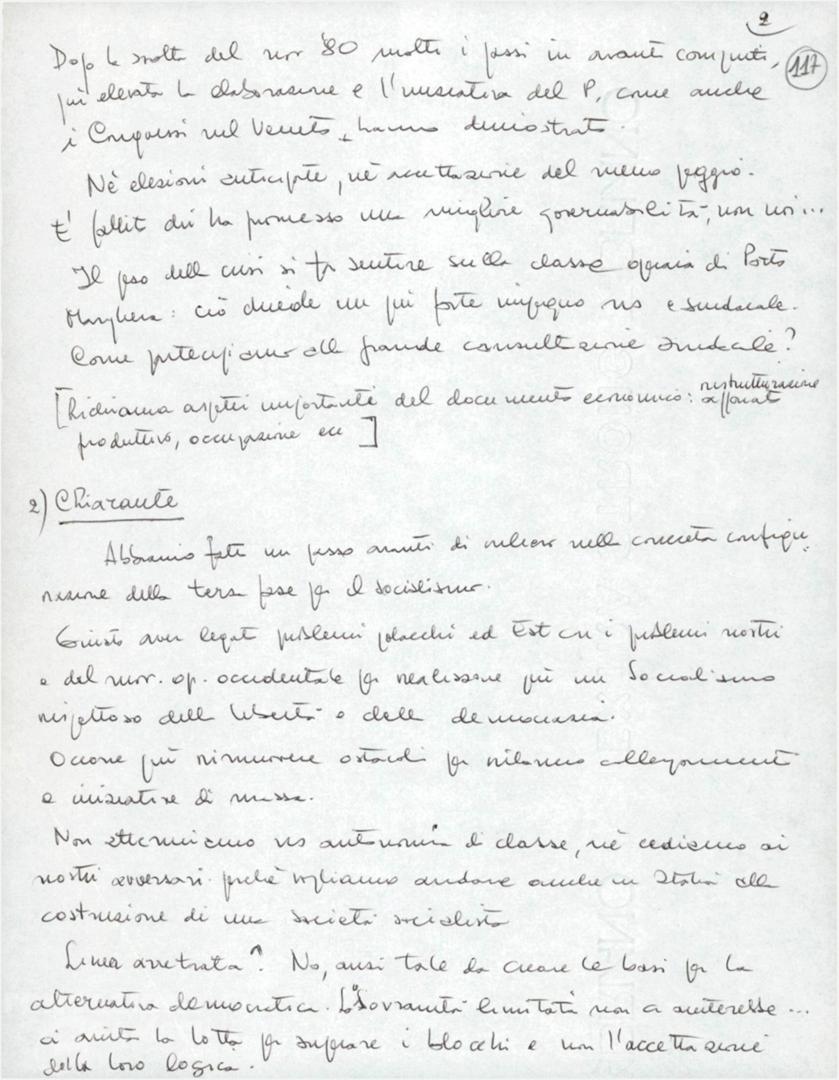 2
117
Dopo la svolta del nov '80 molti i passi in avanti compiuti,
più elevata la elaborazione e l'iniziativa del P, come anche
i Congressi nel Veneto hanno dimostrato.
Nè elezioni anticipate, nè accettazione del meno peggio.
E' fallito chi ha promesso una migliore governabilità, non noi...
Il peso della crisi si fa sentire sulla classe operaia di Porto
Marghera: ciò chiede un più forte impegno ns e sindacale.
Come partecipiamo alla grande consultazione sindacale?
[Richiama aspetti importanti del documento economico: ristrutturazione apparato
produttivo, occupazione ecc]
2) Chiarante
Abbiamo fatto un passo avanti di rilievo nella concreta configu
razione della terza fase per il socialismo.
Giusto aver legato problemi polacchi ed Est con i problemi nostri
e del mov. op. occidentale per realizzare più un Socialismo
rispettoso della libertà e della democrazia.
Occorre più rimuovere ostacoli per rilancio collegamenti
e iniziative di massa.
Non attenuiamo ns autonomia di classe, nè cediamo ai
nostri avversari perchè vogliamo andare anche in Italia alla
costruzione di una società socialista
Linea arretrata? No, anzi tale da creare le basi per la
alternativa democratica. La Sovranità limitata non ci interessa...
ci aiuta la lotta per superare i blocchi e non l'accettazione
della loro logica.